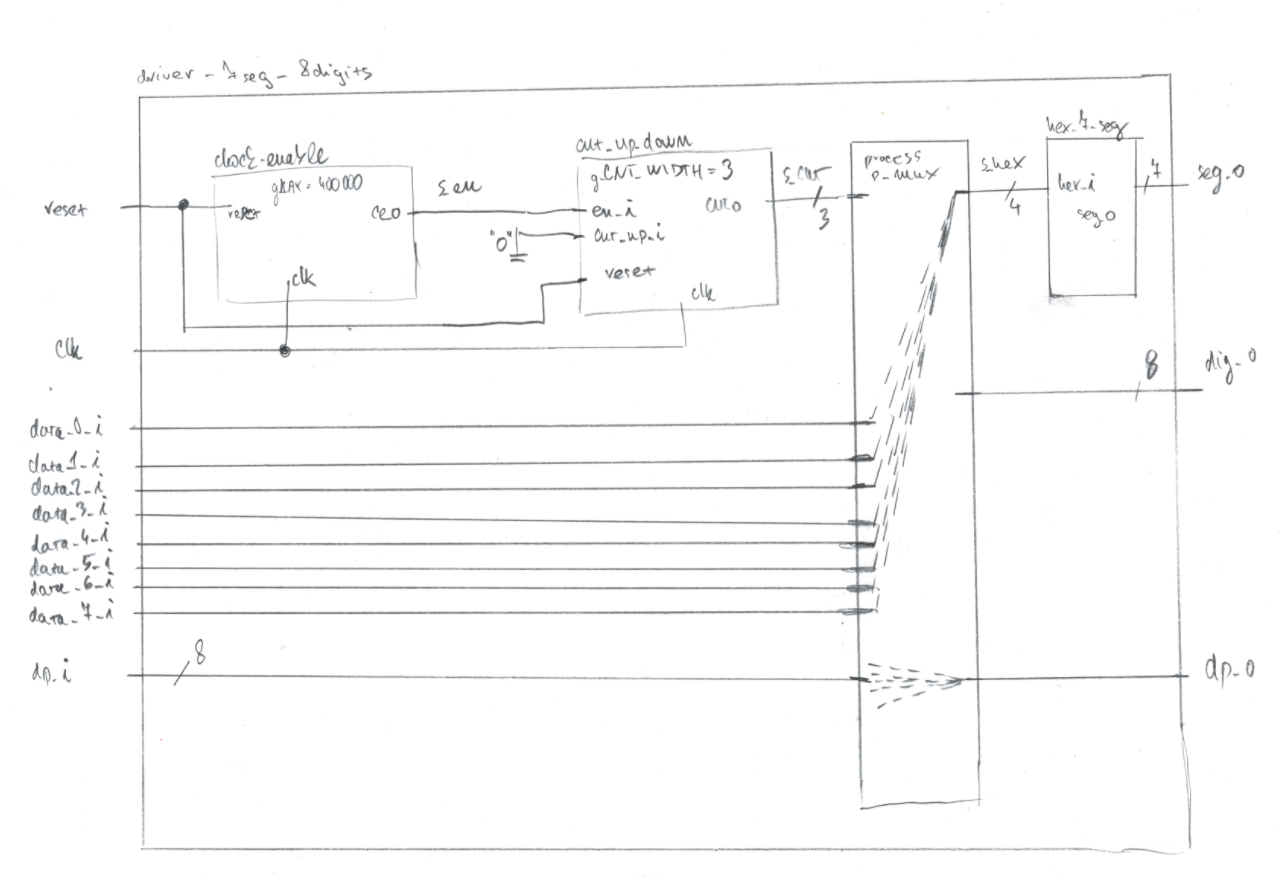 driver_7seg_8digits
clock_enable
gMAX = 400000
reset
ce_o
clk
s_en
cnt_up_down
g_CNT_WIDTH = 3
en_i
cnt_o
"0"
cnt_up_i
reset
clk
s_cnt
3
process
p_mux
s_hex
4
hex_7_seg
hex_i
seg_o
7
seg_o
reset
clk
8
dig_o
data_0_i
data_1_i
data_2_i
data_3_i
data_4_i
data_5_i
data_6_i
data_7_i
dp_i
8
dp_o